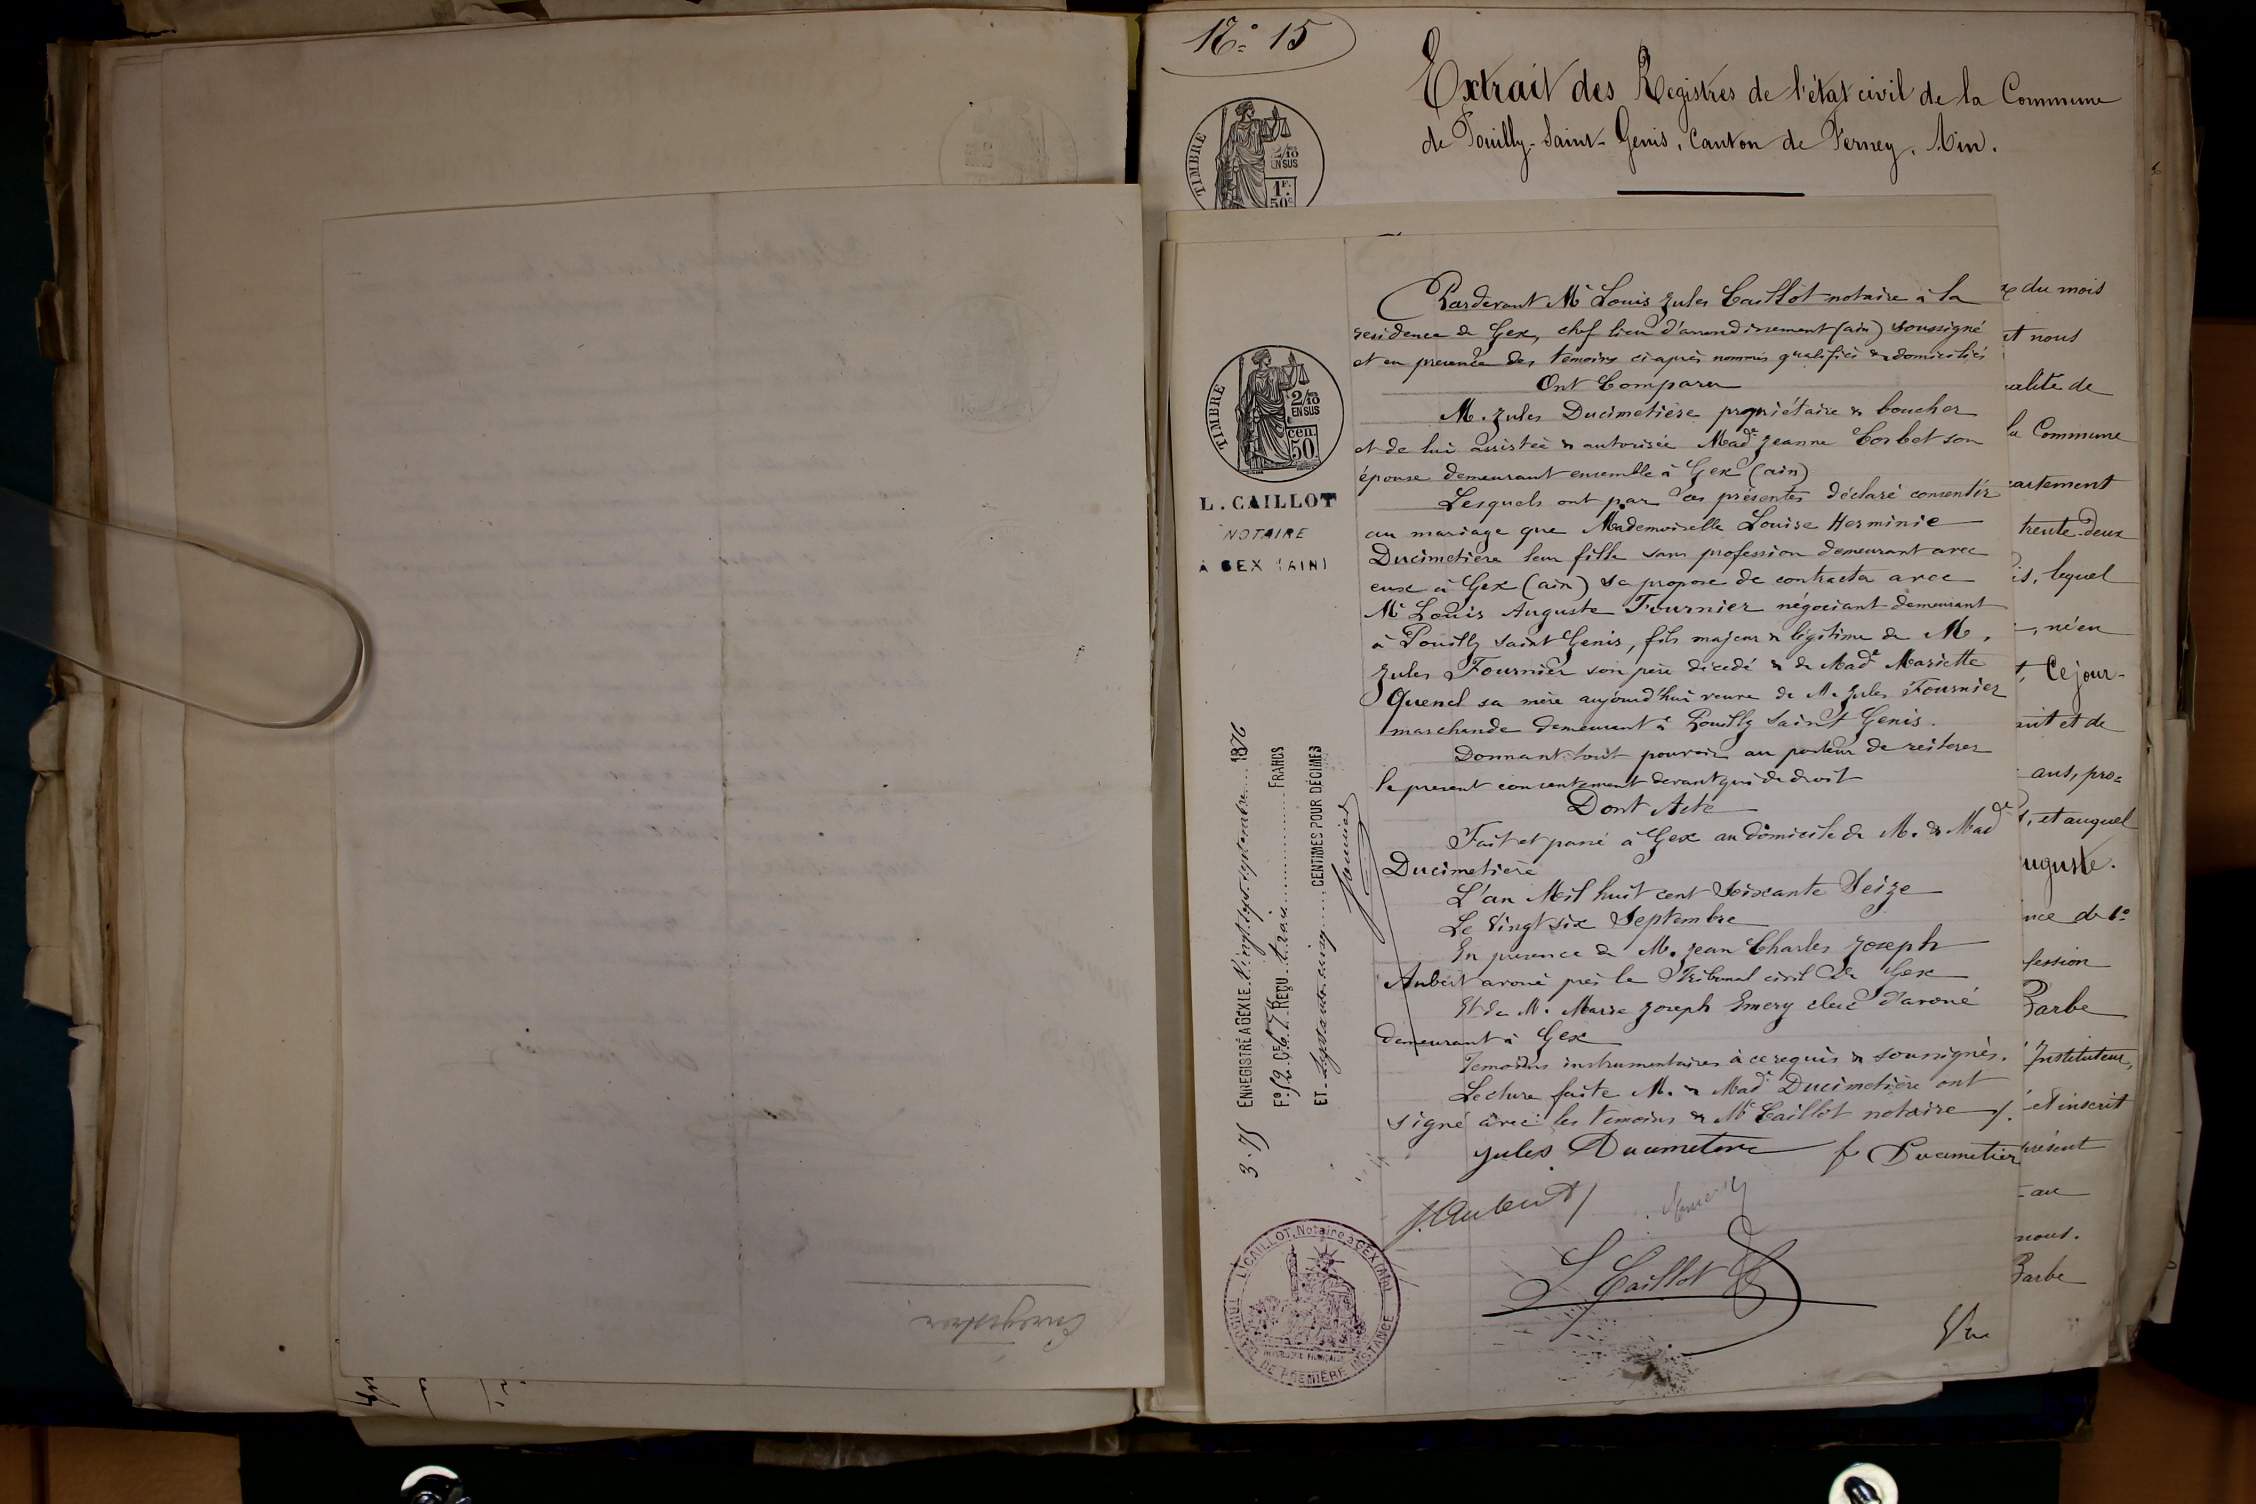 N° 15
Extrait des Registres de l'état civil de la Commune
de Pouilly-Saint-Genis, Canton de Ferney, Ain.
TIMBRE
2/10 EN SUS
1F. 50c
Pardevant Me Louis Jules Caillot notaire à la
residence de Gex, chef lieu d'arrondissement (ain) soussigné
et en presence des temoins ci après nommés qualifiés & domiciliés
Ont Comparu
M. Jules Ducimetière propriétaire & boucher
et de lui assistée & autorisée Made Jeanne Corbet son
épouse demeurant ensemble à Gex (ain)
Lesquels ont par ces présentes déclaré consentir
au mariage que Mademoiselle Louise Herminie
Ducimetière leur fille sans profession demeurant avec
eux à Gex (ain) se propose de contracter avec
Mr Louis Auguste Fournier négociant demeurant
à Pouilly Saint Genis, fils majeur & légitime de M.
Jules Fournier son père décédé & de Made Mariette
Quenel sa mère aujourd'hui veuve de M. Jules Fournier
marchande demeurant à Pouilly Saint Genis.
Donnant tout pouvoir au porteur de reiterer
le present consentement devant qui de droit
Dont Acte
Fait et passé à Gex au domicile de M. & Made
Ducimetière
L'an Mil huit cent Soixante Seize
Le Vingt six Septembre
En presence de M. Jean Charles Joseph
Aubert avoué près le Tribunal civil de Gex
Et de M. Marie Joseph Emery clerc d'avoué
demeurant à Gex
Temoins instrumentaires à ce requis & soussignés.
Lecture faite M. & Made Ducimetière ont
signé avec les temoins & Me Caillot notaire
Jules Ducimetiere
Ducimetier
J. Aubert
Emery
L Caillot
TIMBRE
2/10 EN SUS
cen. 50
L. CAILLOT
NOTAIRE
A GEX (AIN)
ENREGISTRÉ A GEX LE Vingt sept septembre 1876
F° 52 Ce 67 REÇU trois FRANCS
ET soixante quinze CENTIMES POUR DECIMES
3.75
L. CAILLOT, Notaire à GEX (Ain)
TRIBUNAL DE PREMIÈRE INSTANCE
REPUBLIQUE FRANÇAISE
du mois
et nous
la Commune
trente-deux
lequel
né en
Ce jour-
et de
ans, pro=
et auquel
Barbe
Instituteur,
et inscrit
présent
au
nous.
Barbe